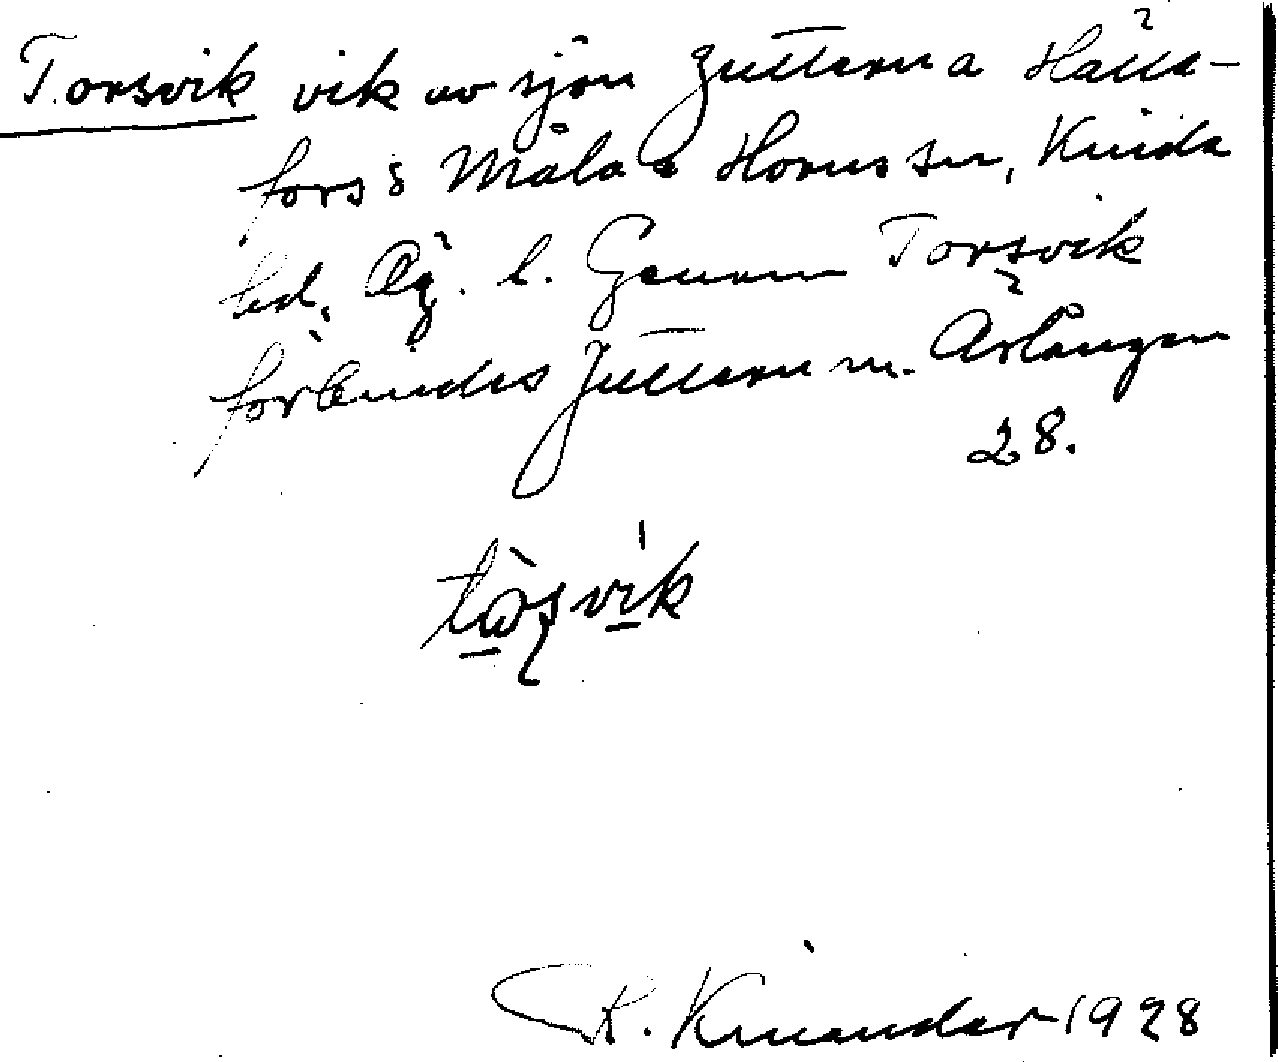 Torsvik vik av sjön Juttern a Hälle-
fors s Måla s Horns sn, Kinda
hd, Ög. l. Genom Torsvik
förbindes Juttern m. Ärlången
28.
tòrsvik
R. Kinander 1928